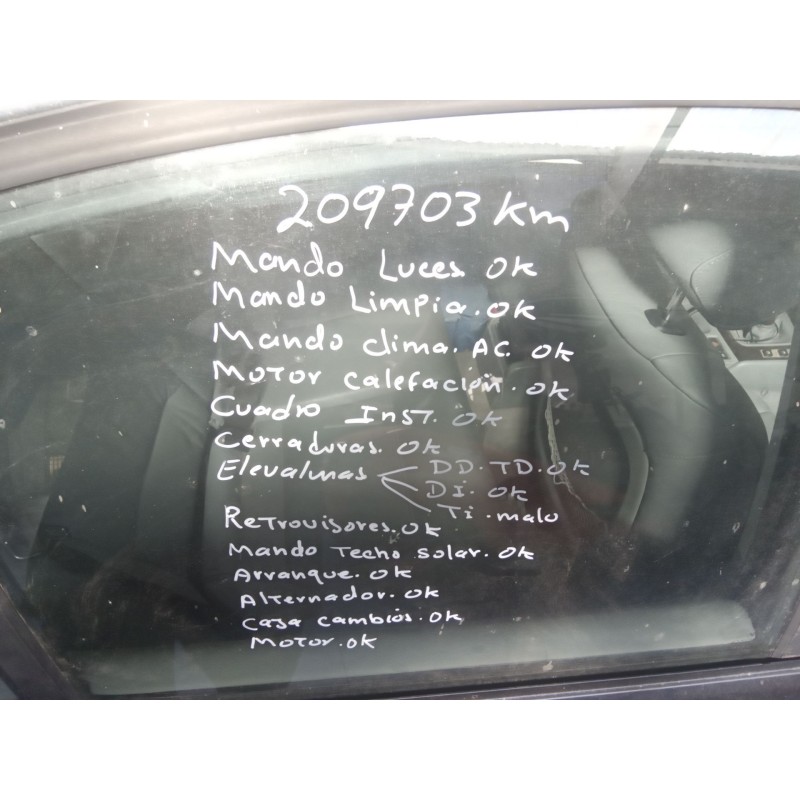 209703 Km
Mando Luces OK
Mando Limpia. OK
Mando clima. AC. OK
Motor calefacion. OK
Cuadro Inst. OK
Cerraduras. OK
Elevalunas DD. TD. OK
DI. OK
Ti. malo
Retrovisores. OK
Mando Techo solar. OK
Arranque. OK
Alternador. OK
Casa cambios. OK
Motor. OK